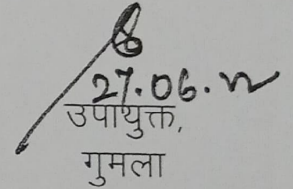 27.06.22
उपायुक्त,
गुमला